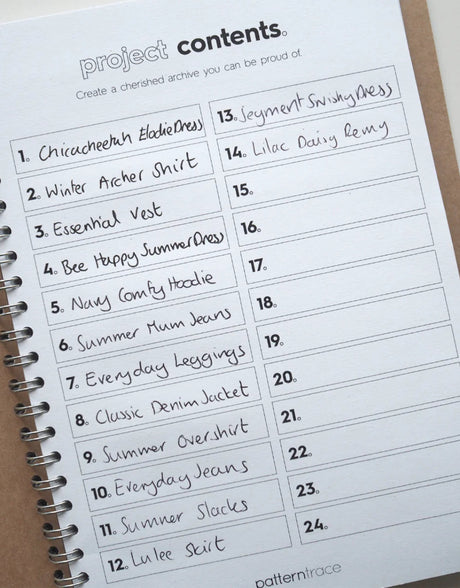 project contents.
Create a cherished archive you can be proud of.
1. Chicacheetah Elodie Dress
2. Winter Archer Shirt
3. Essential Vest
4. Bee Happy Summer Dress
5. Navy Comfy Hoodie
6. Summer Mum Jeans
7. Everyday Leggings
8. Classic Denim Jacket
9. Summer Overshirt
10. Everyday Jeans
11. Summer Slacks
12. Lulee Skirt
13. Seyment Swishy Dress
14. Lilac Daisy Remy
15.
16.
17.
18.
19.
20.
21.
22.
23.
24.
patterntrace